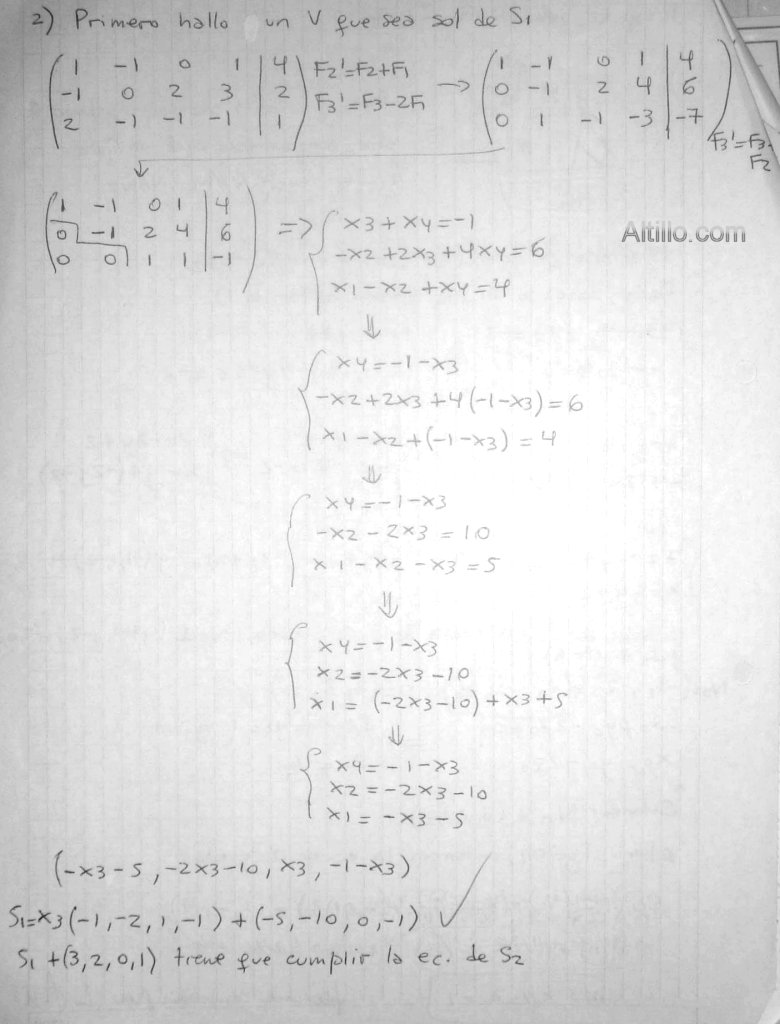 2) Primero hallo un V que sea sol de S1
( 1 -1 0 1 | 4 ) F2'=F2+F1 → ( 1 -1 0 1 | 4 )
( -1 0 2 3 | 2 ) F3'=F3-2F1 ( 0 -1 2 4 | 6 )
( 2 -1 -1 -1 | 1 ) ( 0 1 -1 -3 | -7 ) F3'=F3-
F2
↓
( 1 -1 0 1 | 4 ) => { x3+x4=-1
( 0 -1 2 4 | 6 ) -x2+2x3+4x4=6
( 0 0 1 1 | -1 ) x1-x2+x4=4
Altillo.com
⇓
{ x4=-1-x3
-x2+2x3+4(-1-x3)=6
x1-x2+(-1-x3)=4
⇓
{ x4=-1-x3
-x2-2x3=10
x1-x2-x3=5
⇓
{ x4=-1-x3
x2=-2x3-10
x1=(-2x3-10)+x3+5
⇓
{ x4=-1-x3
x2=-2x3-10
x1=-x3-5
(-x3-5,-2x3-10,x3,-1-x3)
S1=x3(-1,-2,1,-1)+(-5,-10,0,-1) ✓
S1+(3,2,0,1) tiene que cumplir la ec. de S2